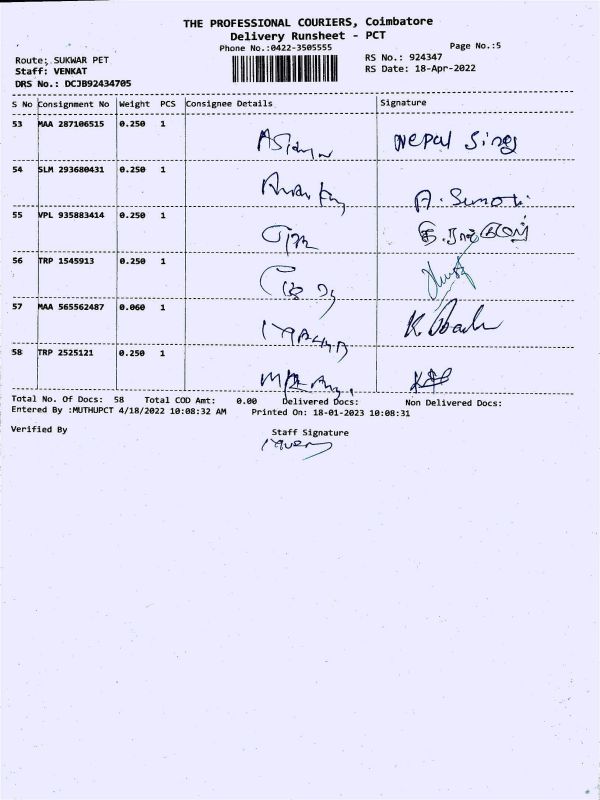 THE PROFESSIONAL COURIERS, Coimbatore
Delivery Runsheet - PCT
Phone No.:0422-3505555
Page No.:5
Route: SUKWAR PET
RS No.: 924347
Staff: VENKAT
RS Date: 18-Apr-2022
DRS No.: DCJB92434705
S No Consignment No Weight PCS Consignee Details Signature
53 MAA 287106515 0.250 1 Nepal Sing
54 SLM 293680431 0.250 1
55 VPL 935883414 0.250 1
56 TRP 1545913 0.250 1
57 MAA 565562487 0.060 1
58 TRP 2525121 0.250 1
Total No. Of Docs: 58 Total COD Amt: 0.00 Delivered Docs: Non Delivered Docs:
Entered By :MUTHUPCT 4/18/2022 10:08:32 AM Printed On: 18-01-2023 10:08:31
Verified By Staff Signature